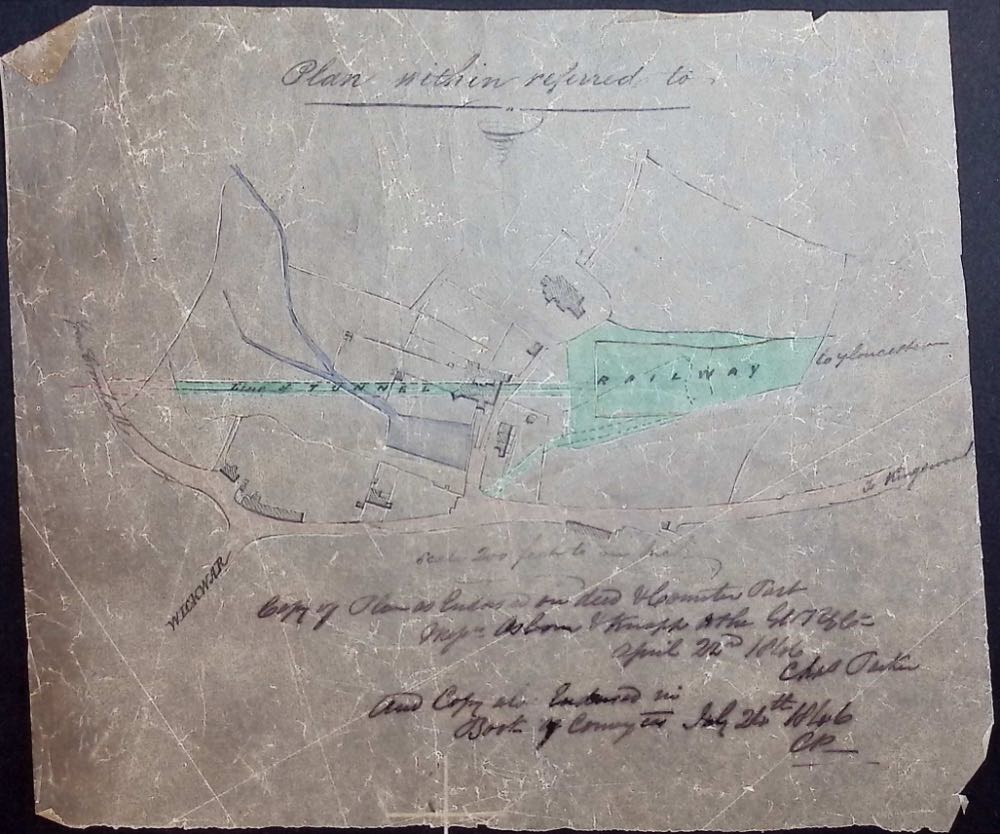 Plan within referred to
RAILWAY
to Gloucester
Line of TUNNEL
to Kingswood
WICKWAR
Scale 200 feet to one Inch
Copy of Plan as on deed & Counter Part
& Knapp & the
April 22nd 1846
Chas Parker
And Copy also in
Book of July 24th 1846
CP